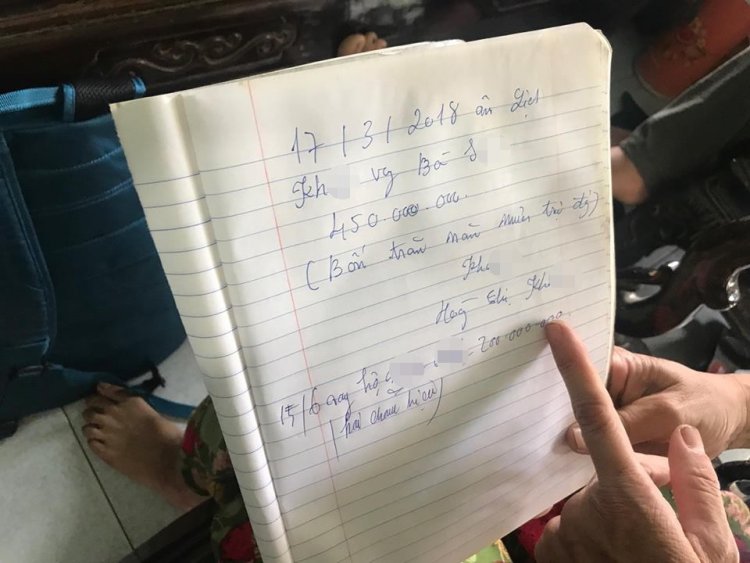 17/3/2018 âm lịch
Kh vy Bà S
450.000.000.
(Bốn trăm năm mươi triệu đg)
Kh
Kh
15/6 vay hộ 200.000.000.
(hai trăm triệu)